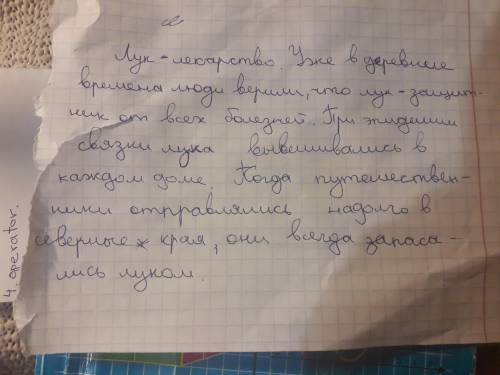 Лук - лекарство. Уже в древние
времена люди верили, что лук - защит-
ник от всех болезней. При эпидемии
связки лука вывешивались в
каждом доме. Когда путешествен-
ники отправлялись надолго в
северные края, они всегда запаса-
лись луком.
4. operator.